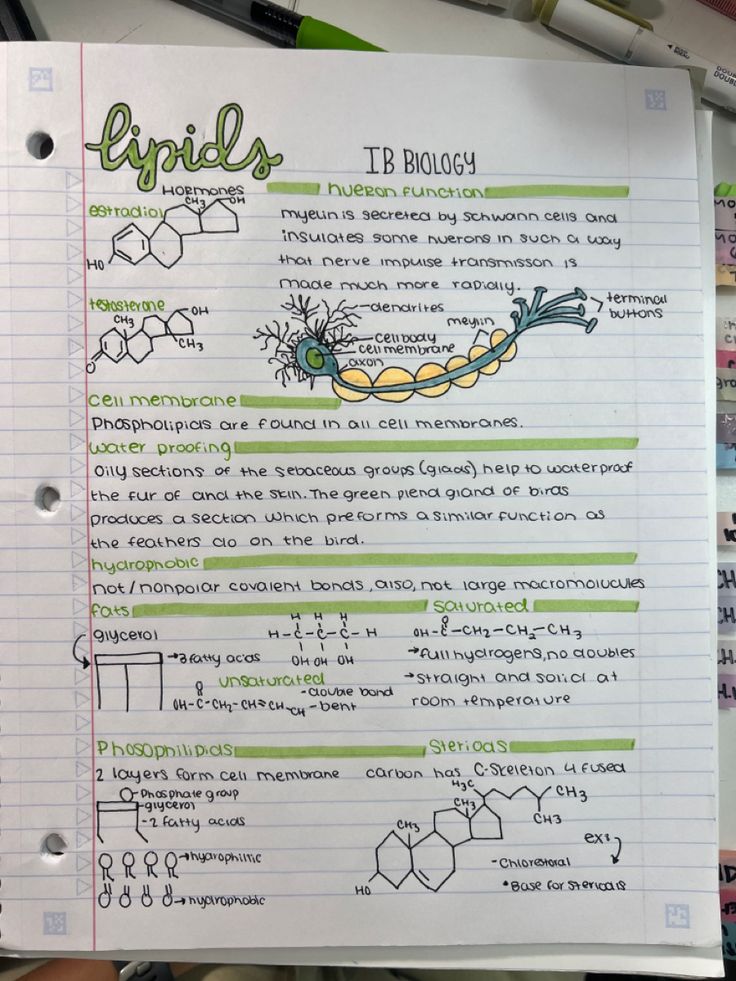 lipids
IB BIOLOGY
Hormones
nueron function
estradiol
CH3
OH
HO
myelin is secreted by schwann cells and
insulates some nuerons in such a way
that nerve impulse transmisson is
made much more rapidly.
testosterone
CH3
OH
CH3
O
dendrites
cell body
cell membrane
axon
meylin
terminal
buttons
cell membrane
Phospholipids are found in all cell membranes.
water proofing
oily sections of the sebaceous groups (glads) help to waterproof
the fur of and the skin. The green plend gland of birds
produces a section which preforms a similar function as
the feathers do on the bird.
hydrophobic
not/nonpolar covalent bonds, also, not large macromolucules
fats
saturated
glycerol
→3 fatty acids
H H H
H-C-C-C-H
OH OH OH
O
OH-C-CH2-CH2-CH3
→full hydrogens, no doubles
→straight and solid at
room temperature
unsaturated
-double bond
-bent
O
OH-C-CH2-CH=CH-CH
Phosophilipids
Steriods
2 layers form cell membrane
carbon has C-skeleton 4 fused
Phosphate group
-glycerol
-2 fatty acids
→hydrophillic
→hydrophobic
H3C
CH3
CH3
CH3
CH3
HO
ex:
-Chlorestoral
•Base for stericals